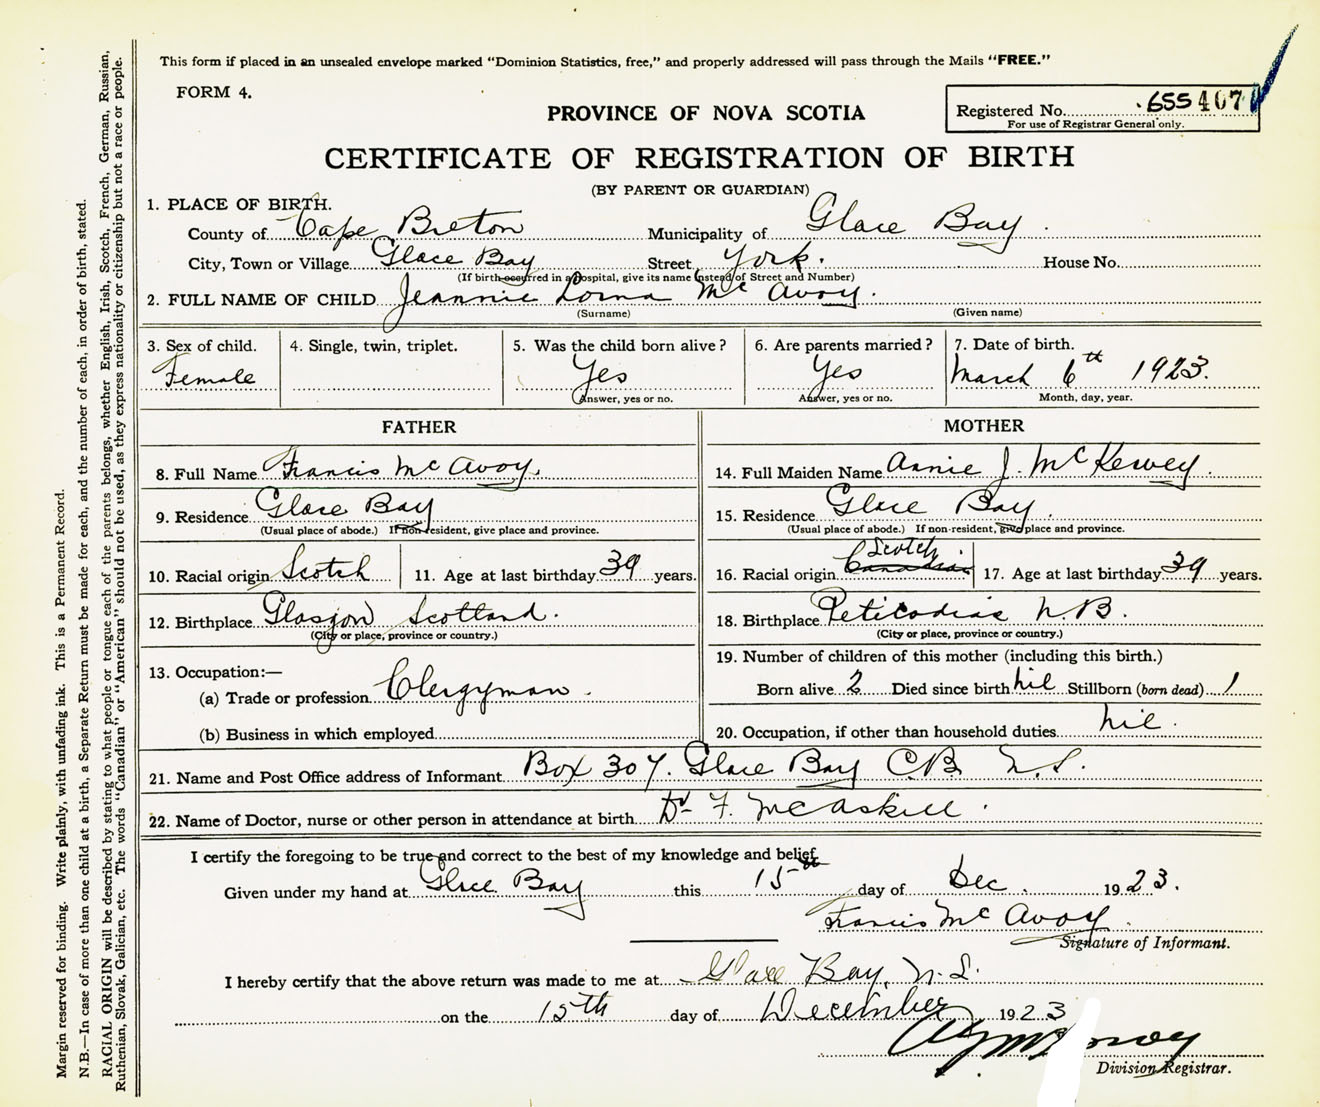 This form if placed in an unsealed envelope marked "Dominion Statistics, free," and properly addressed will pass through the Mails "FREE."
FORM 4.
PROVINCE OF NOVA SCOTIA
Registered No. 655407
For use of Registrar General only.
CERTIFICATE OF REGISTRATION OF BIRTH
(BY PARENT OR GUARDIAN)
1. PLACE OF BIRTH.
County of Cape Breton Municipality of Glace Bay
City, Town or Village Glace Bay Street York. House No.
(If birth occurred in a hospital, give its name instead of Street and Number)
2. FULL NAME OF CHILD Jeannie Lorna McAvoy.
(Surname) (Given name)
3. Sex of child. 4. Single, twin, triplet. 5. Was the child born alive? 6. Are parents married? 7. Date of birth.
Female Yes Yes March 6th 1923.
Answer, yes or no. Answer, yes or no. Month, day, year.
FATHER
8. Full Name Francis McAvoy.
9. Residence Glace Bay
(Usual place of abode.) If non-resident, give place and province.
10. Racial origin Scotch 11. Age at last birthday 39 years.
12. Birthplace Glasgow Scotland.
(City or place, province or country.)
13. Occupation:—
(a) Trade or profession Clergyman.
(b) Business in which employed
MOTHER
14. Full Maiden Name Annie J. McKewey.
15. Residence Glace Bay.
(Usual place of abode.) If non-resident, give place and province.
Scotch
16. Racial origin Canadian 17. Age at last birthday 39 years.
18. Birthplace Peticodiac N.B.
(City or place, province or country.)
19. Number of children of this mother (including this birth.)
Born alive 2 Died since birth nil Stillborn (born dead) 1
20. Occupation, if other than household duties nil.
21. Name and Post Office address of Informant Box 307. Glace Bay C.B. N.S.
22. Name of Doctor, nurse or other person in attendance at birth Dr F. McAskill.
I certify the foregoing to be true and correct to the best of my knowledge and belief.
Given under my hand at Glace Bay this 15th day of Dec. 1923.
Francis McAvoy.
Signature of Informant.
I hereby certify that the above return was made to me at Glace Bay, N.S.
on the 15th day of December 1923
Division Registrar.
Margin reserved for binding. Write plainly, with unfading ink. This is a Permanent Record.
N.B.—In case of more than one child at a birth, a Separate Return must be made for each, and the number of each, in order of birth, stated.
RACIAL ORIGIN will be described by stating to what people or tongue each of the parents belongs, whether English, Irish, Scotch, French, German, Russian,
Ruthenian, Slovak, Galician, etc. The words "Canadian" or "American" should not be used, as they express nationality or citizenship but not a race or people.